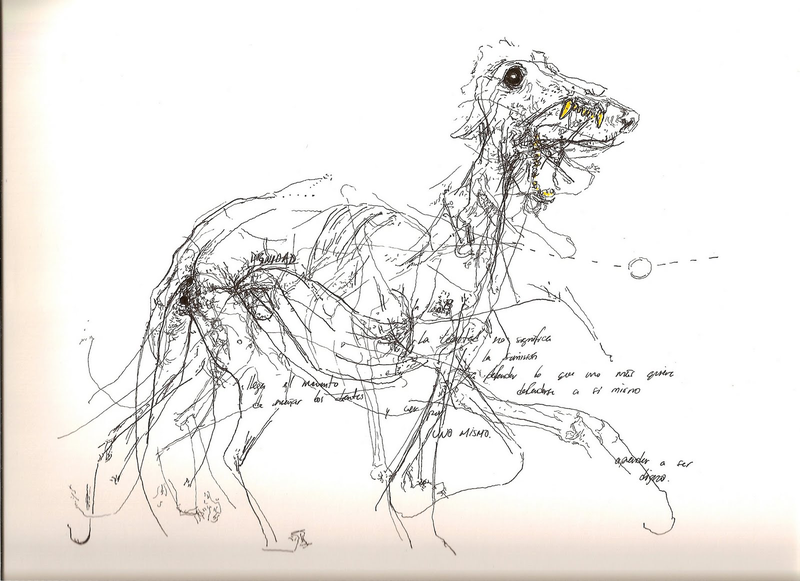 DIGNIDAD
La lealtad no significa
la sumisión
defender lo que uno más quiere
defenderse a si mismo
llega el momento
de enseñar los dientes
y ser
UNO MISMO.
aprender a ser
digno.